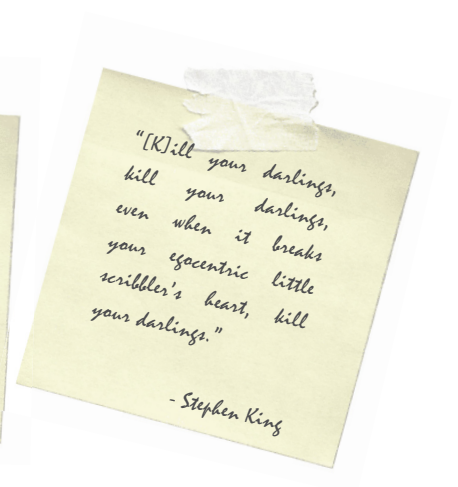 "[K]ill your darlings,
kill your darlings,
even when it breaks
your egocentric little
scribbler's heart, kill
your darlings."
- Stephen King